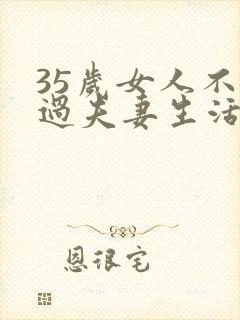 35歲女人不
過夫妻生活
恩很宅